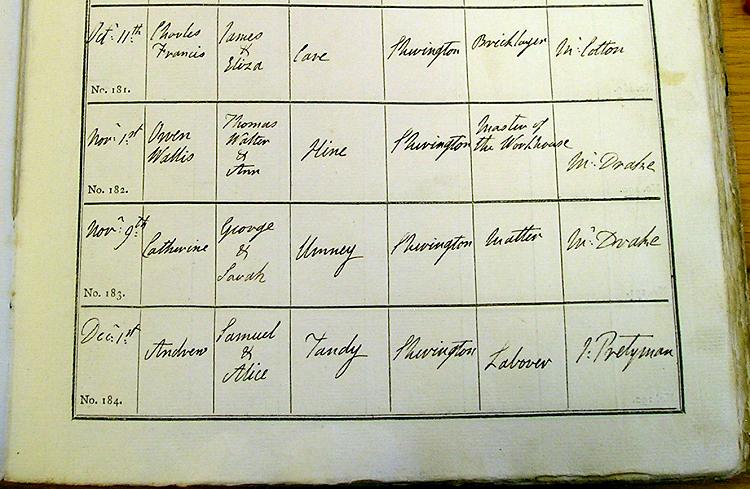 Octr. 11th
Charles
Francis
James
&
Eliza
Cave
Sherington
Bricklayer
Mr. Cotton
No. 181.
Novr. 1st
Owen
Wallis
Thomas
Walter
&
Ann
Hine
Sherington
Master of
the Workhouse
Mr. Drake
No. 182.
Novr. 9th
Catherine
George
&
Sarah
Umney
Sherington
Matter
Mr. Drake
No. 183.
Decr. 1st
Andrew
Samuel
&
Alice
Tandy
Sherington
Laborer
J. Pretyman
No. 184.